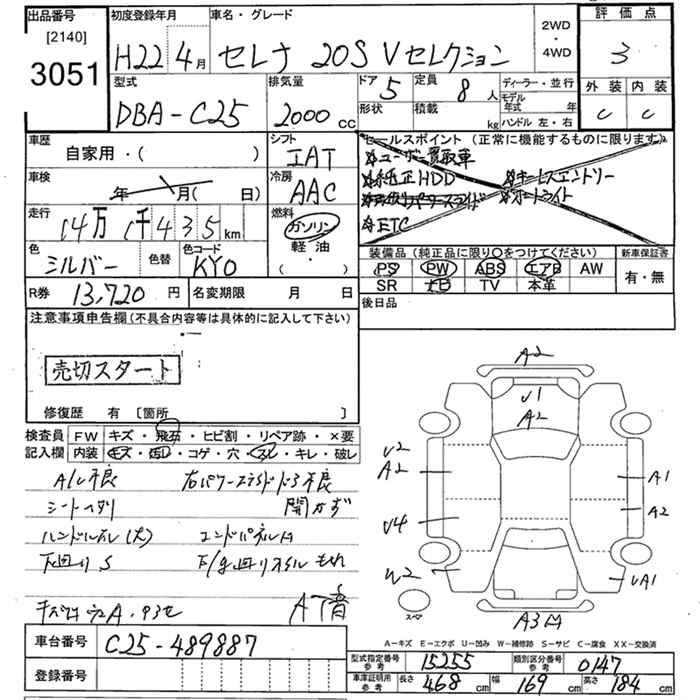 出品番号 初度登録年月 車名・グレード 2WD・4WD 評価点
[2140]
3051 H22 4月 セレナ 20S Vセレクション 3
型式 排気量 ドア 5 定員 8人 ディーラー・並行 外装 内装
モデル年式 年
DBA-C25 2000cc 形状 積載 kg ハンドル 左・右 C C
車歴 シフト セールスポイント(正常に機能するものに限ります)
自家用・( ) IAT ユーザー買取車
車検 冷房 純正HDD キーレスエントリー
年 月( 日) AAC オートライト
走行 燃料
14万1千435km ガソリン ETC
軽油・( )
色 色替 色コード 装備品(純正品に限り○をつけてください) 新車保証書
シルバー KY0 PS PW ABS エアB AW 有・無
R券 13,720円 名変期限 月 日 SR ナビ TV 本革
注意事項申告欄(不具合内容等は具体的に記入して下さい) 後日品
売切スタート
修復歴 有 [箇所 ]
検査員 FW キズ・飛石・ヒビ割・リペア跡・×要
記入欄 内装 キズ・汚レ・コゲ・穴・スレ・キレ・破レ
A/C不良 右パワースライドドア不良
シートヘタリ 開かず
下回りS
A2
U1
A2
U2
A2 A1
A2
U4
W2 UA1
スペア
A3
A-キズ E-エクボ U-凹み W-補修跡 S-サビ C-腐食 XX-交換済
車台番号 C25-489887 型式指定番号 参考 15255 類別区分番号 参考 0147
登録番号 車庫証明用 参考 長さ 468cm 幅 169cm 高さ 184cm